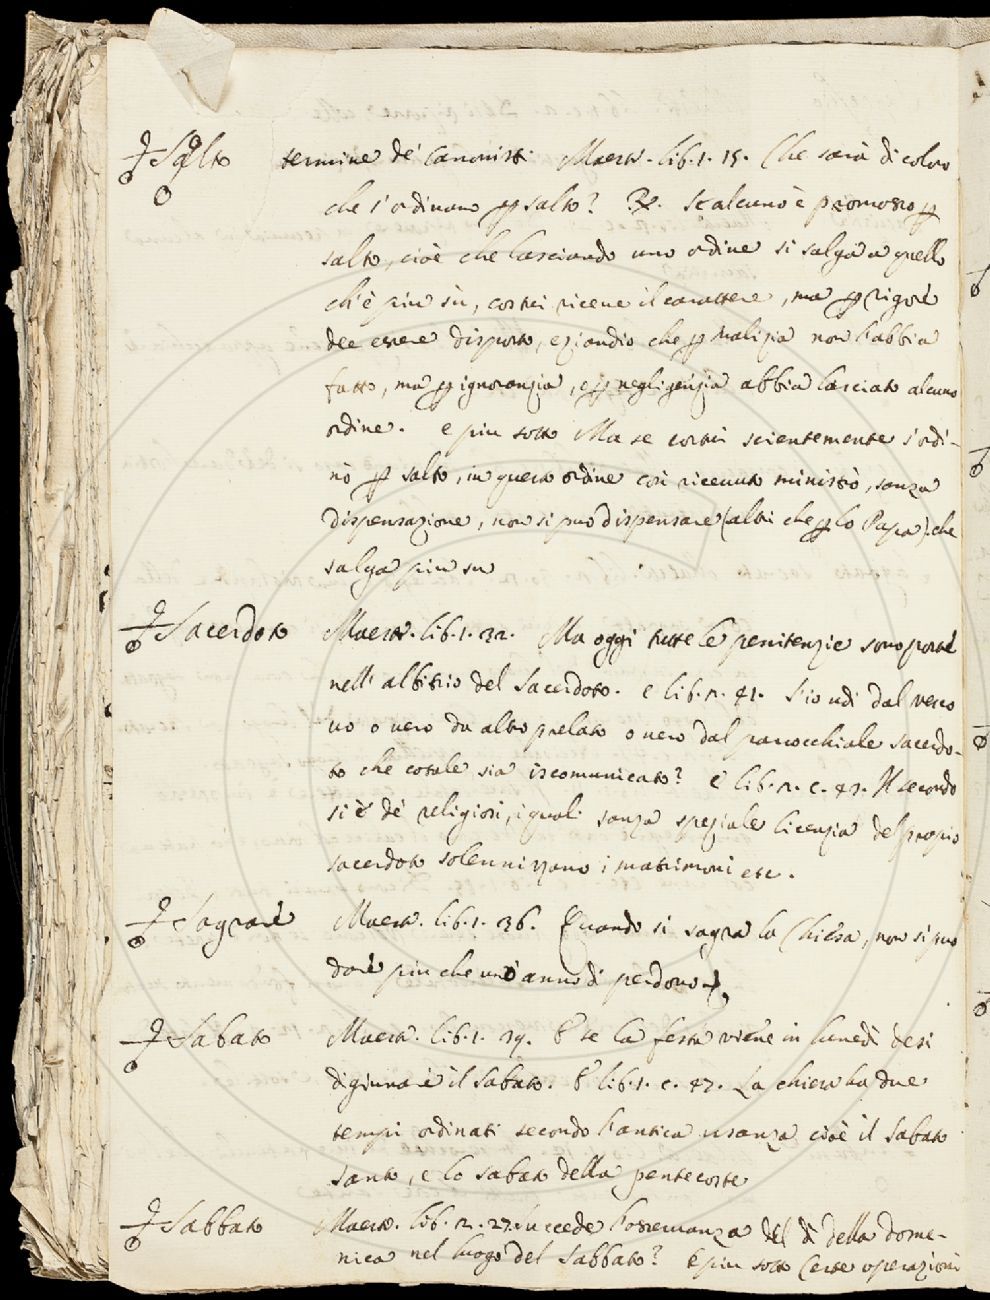 Salto termine de' Canonisti Maestr. lib. 1. 15. Che sarà di coloro
che s'ordinano ꝑ salto? R. Se alcuno è promosso ꝑ
salto, cioè che lasciando uno ordine si salga a quello
ch'è piu sù, costui riceve il carattere, ma ꝑ rigore
dee essere disposto, eziandio che ꝑ malizia non l'abbia
fatto, ma ꝑ ignoranzia, e ꝑ negligenzia abbia lasciato alcuno
ordine. e piu sotto Ma se costui scientemente s'ordi-
nò ꝑ salto, in questo ordine cosi ricevuto ministrò, sanza
dispensazione, non si può dispensare (altri che ꝑ lo Papa) che
salga piu su
Sacerdoto Maestr. lib. 1. 32. Ma oggi tutte le penitenzie sono poste
nell' albitrio del Sacerdoto. e lib. 2. 41. S'io udi dal vesco
vo o vero da altro prelato o vero dal parocchiale sacerdo-
to che cotale sia iscomunicato? e lib. 2. c. 47. Il secondo
si è de' religiosi, i quali sanza speziale licenzia del propio
sacerdoto solennizzano i matrimoni etc.
Sagrare Maestr. lib. 1. 36. Quando si sagra la Chiesa, non si può
dare piu che uno anno di perdono
Sabato Maestr. lib. 1. 29. E se la festa viene in lunedì desi
digiunare il Sabato. E lib. 1. c. 47. La chiesa ha due
tempi ordinati secondo l'antica usanza cioè il Sabato
Santo, e lo sabato della pentecoste
Sabbato Maestr. lib. 2. 27. Succede l'osservanza del dì della dome-
nica nel luogo del Sabbato? E piu sotto Certe operazioni